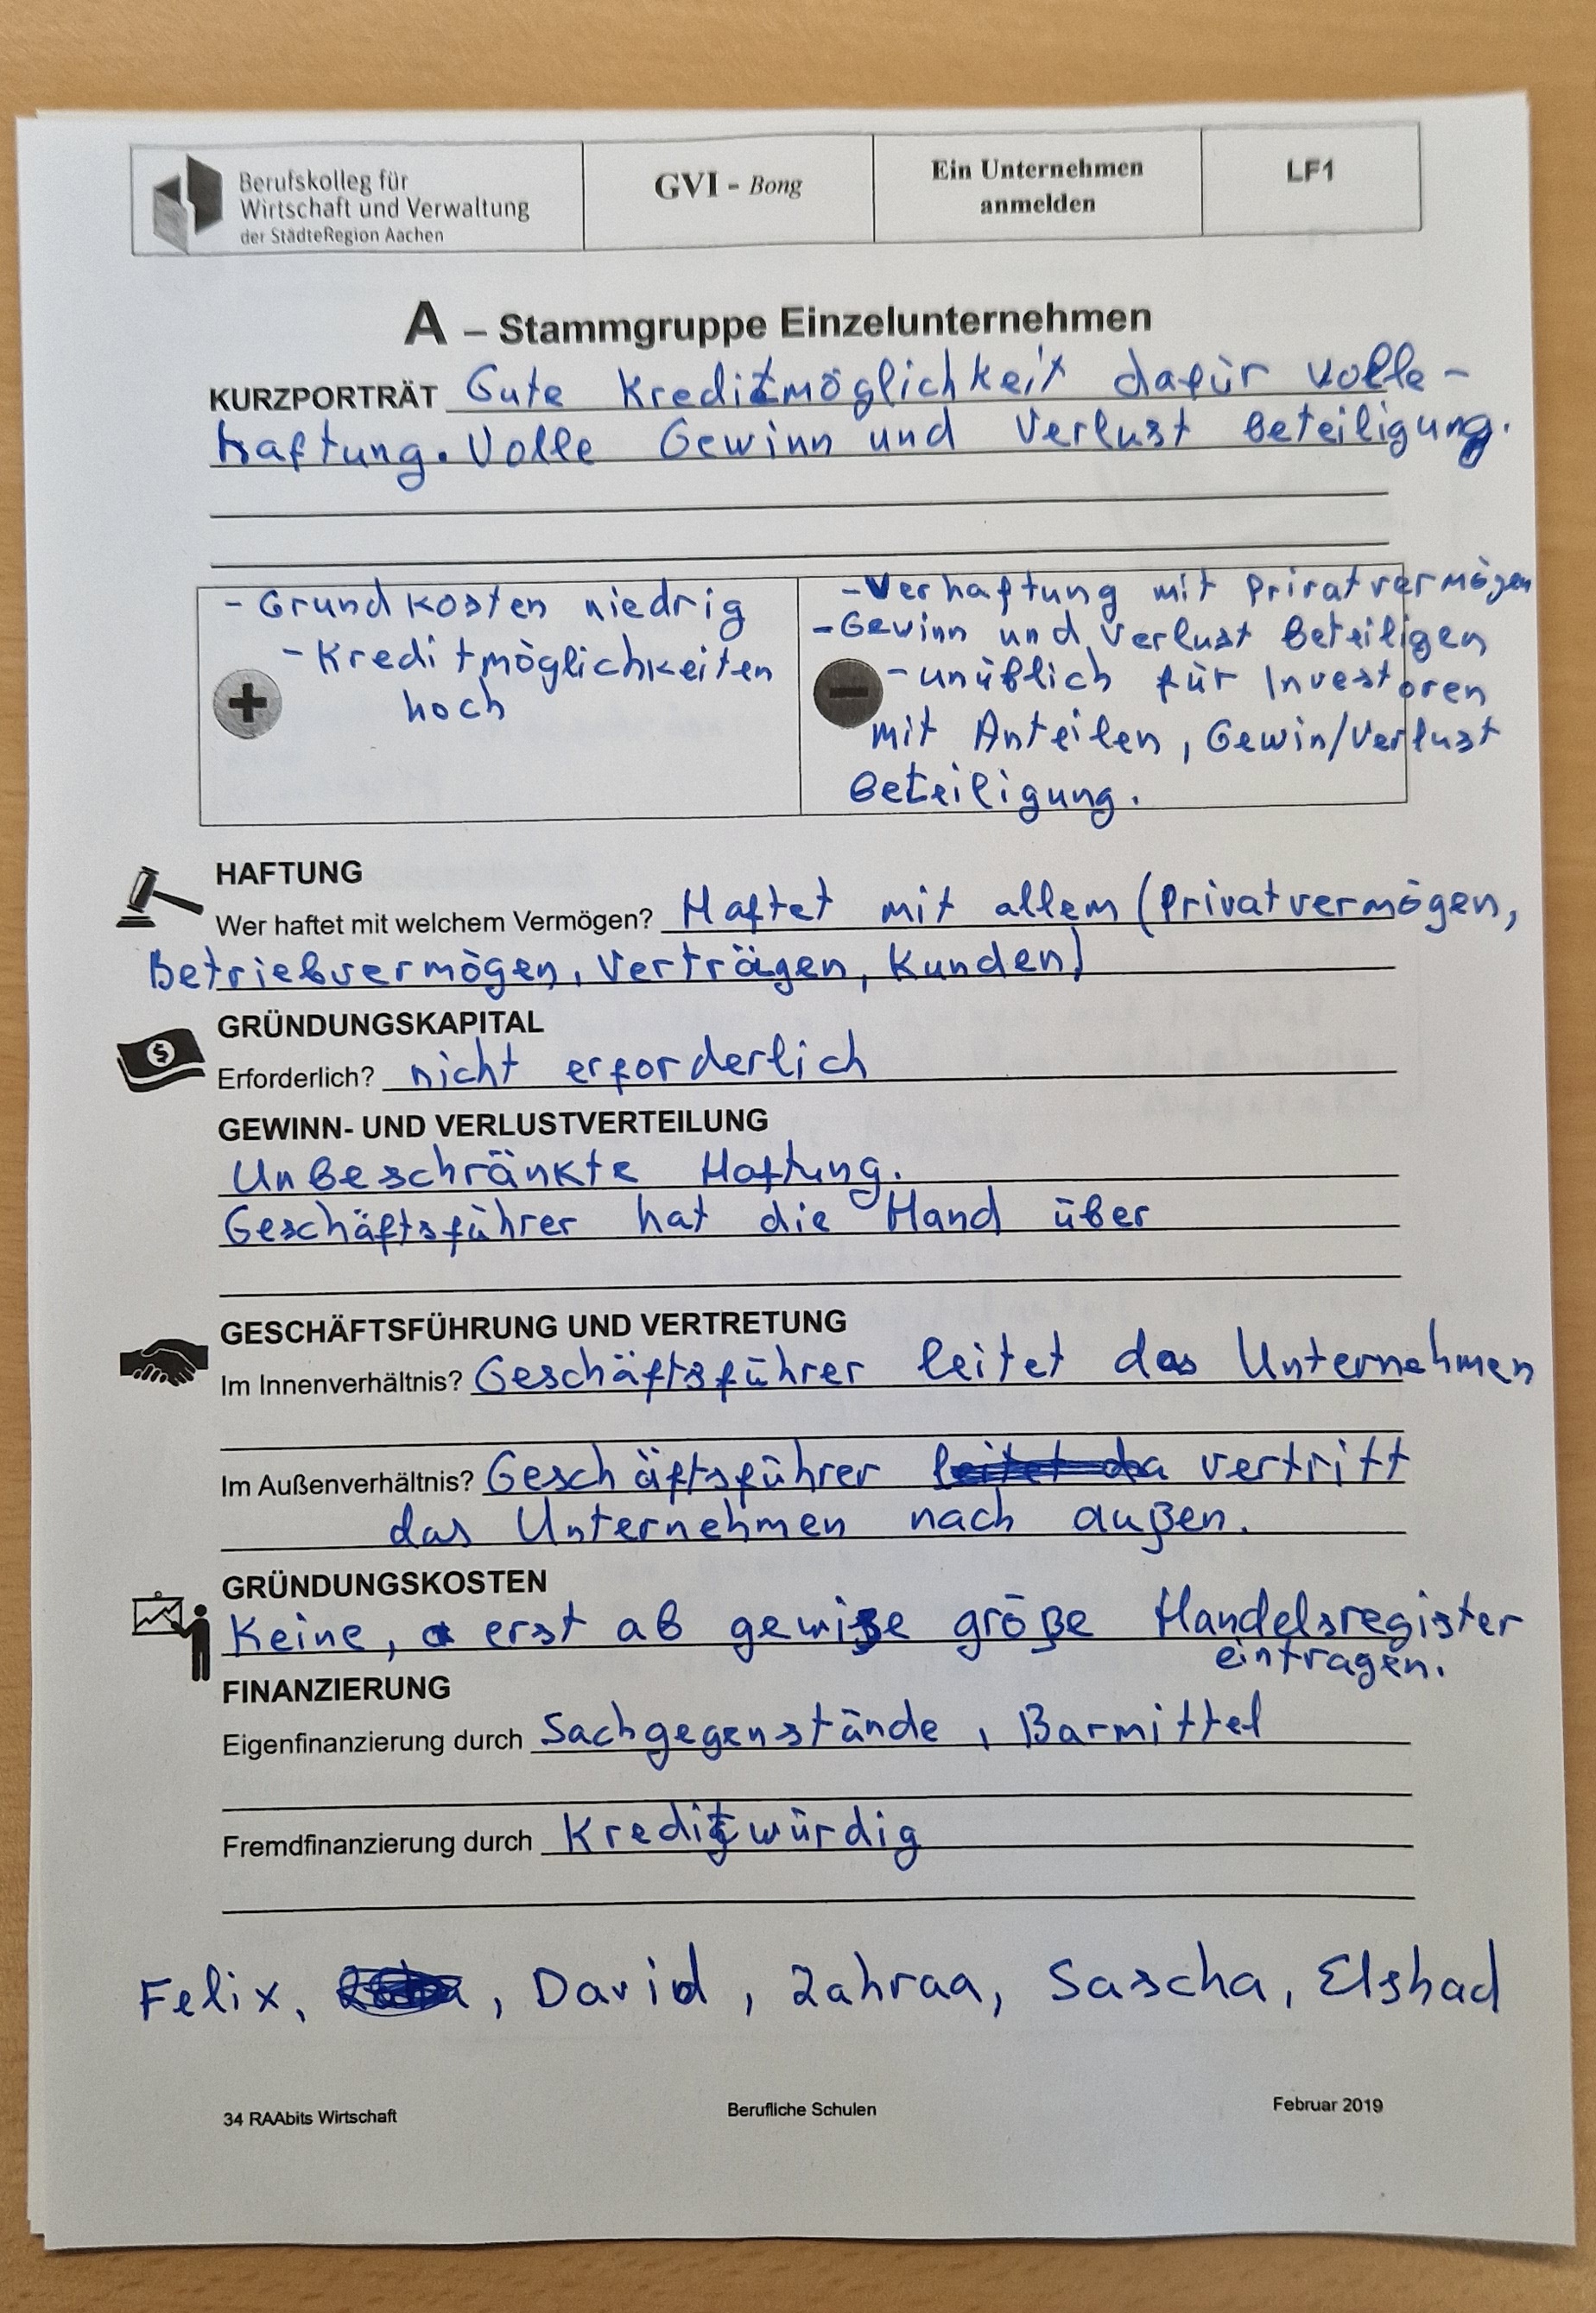 Berufskolleg für
Wirtschaft und Verwaltung
der StädteRegion Aachen
GVI - Bong
Ein Unternehmen
anmelden
LF1
A – Stammgruppe Einzelunternehmen
KURZPORTRÄT Gute Kreditmöglichkeit dafür volle-
haftung. Volle Gewinn und Verlust Beteiligung.
- Grundkosten niedrig
- Kreditmöglichkeiten
hoch
- Verhaftung mit Privatvermögen
- Gewinn und Verlust Beteiligen
- unüblich für Investoren
mit Anteilen, Gewin/Verlust
Beteiligung.
HAFTUNG
Wer haftet mit welchem Vermögen? Haftet mit allem (Privatvermögen,
Betriebsvermögen, Verträgen, Kunden)
GRÜNDUNGSKAPITAL
Erforderlich? nicht erforderlich
GEWINN- UND VERLUSTVERTEILUNG
Unbeschränkte Haftung.
Geschäftsführer hat die Hand über
GESCHÄFTSFÜHRUNG UND VERTRETUNG
Im Innenverhältnis? Geschäftsführer leitet das Unternehmen
Im Außenverhältnis? Geschäftsführer vertritt
das Unternehmen nach außen.
GRÜNDUNGSKOSTEN
Keine, erst ab gewiße größe Handelsregister
eintragen.
FINANZIERUNG
Eigenfinanzierung durch Sachgegenstände, Barmittel
Fremdfinanzierung durch Kreditwürdig
Felix, , David, Zahraa, Sascha, Elshad
34 RAAbits Wirtschaft
Berufliche Schulen
Februar 2019